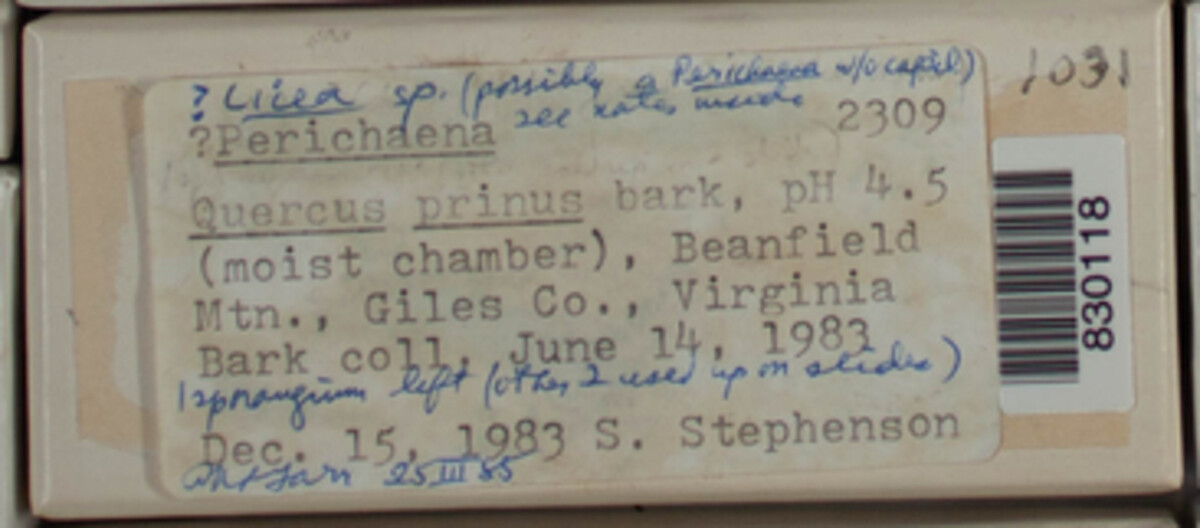 ? Licea sp. (possibly a Perichaena w/o capill.)
see notes inside
1031
?Perichaena 2309
Quercus prinus bark, pH 4.5
(moist chamber), Beanfield
Mtn., Giles Co., Virginia
Bark coll. June 14, 1983
1 sporangium left (other 2 used up on slides)
Dec. 15, 1983 S. Stephenson
Farr 25 III 85
830118